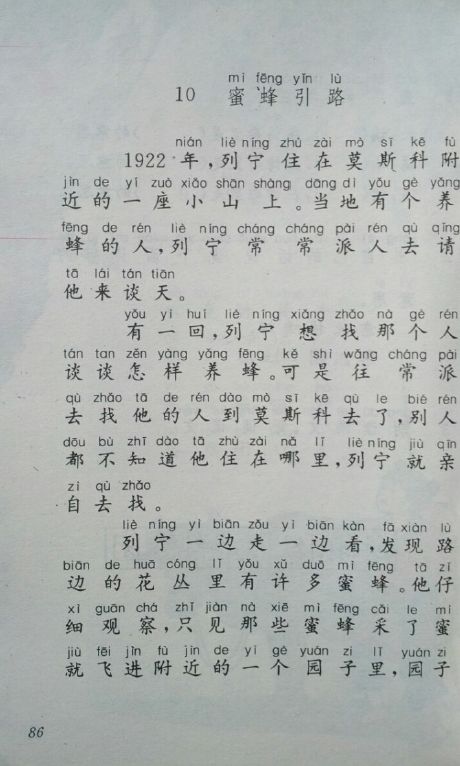 mì fēng yǐn lù
10 蜜蜂引路
nián liè níng zhù zài mò sī kē fù
1922年，列宁住在莫斯科附
jìn de yí zuò xiǎo shān shàng dāng dì yǒu gè yǎng
近的一座小山上。当地有个养
fēng de rén liè níng cháng cháng pài rén qù qǐng
蜂的人，列宁常常派人去请
tā lái tán tiān
他来谈天。
yǒu yì huí liè níng xiǎng zhǎo nà gè rén
有一回，列宁想找那个人
tán tan zěn yàng yǎng fēng kě shì wǎng cháng pài
谈谈怎样养蜂。可是往常派
qù zhǎo tā de rén dào mò sī kē qù le bié rén
去找他的人到莫斯科去了，别人
dōu bù zhī dào tā zhù zài nǎ lǐ liè níng jiù qīn
都不知道他住在哪里，列宁就亲
zì qù zhǎo
自去找。
liè níng yì biān zǒu yì biān kàn fā xiàn lù
列宁一边走一边看，发现路
biān de huā cóng lǐ yǒu xǔ duō mì fēng tā zǐ
边的花丛里有许多蜜蜂。他仔
xì guān chá zhǐ jiàn nà xiē mì fēng cǎi le mì
细观察，只见那些蜜蜂采了蜜
jiù fēi jìn fù jìn de yí gè yuán zi lǐ yuán zi
就飞进附近的一个园子里，园子
86